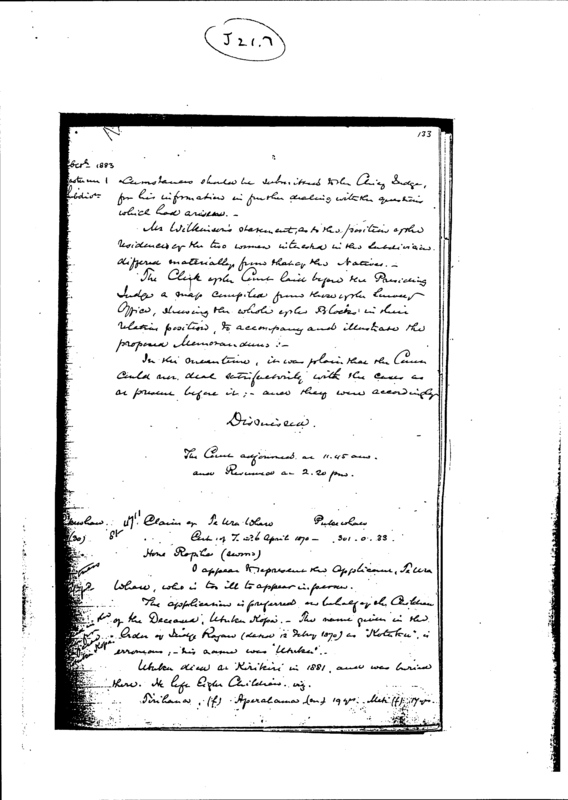 J 21.7
133
Octr 1883
circumstances should be submitted to the Chief Judge,
for his information in further dealing with the questions
which had arisen. -
Mr Wilkinson's statement, as to the position of the
residences of the two women interested in this Subdivision
differed materially from that of the Natives. -
The Clerk of the Court laid before the Presiding
Judge a map compiled from those of the Survey
Office, shewing the whole of the Blocks in their
relative position, to accompany and illustrate the
proposed Memorandum :-
In the meantime, it was plain that the Court
could not deal satisfactorily with the cases as
at present before it ; - and they were accordingly
Dismissed.
The Court adjourned at 11.45 am.
and Resumed at 2.20 pm.
Claim of Te Wra Whare
Cert. of T. April 1870 - 301. 0. 33
Hone Ropiha (sworn)
I appear to represent the Applicant, Te Wra
Whare, who is too ill to appear in person.
The application is preferred on behalf of the Children
of the Deceased, -. The name given in the
Order of Judge Rogan (dated Feby 1870) as is
erroneous ; - his name was
died at Kirikiri in 1881, and was buried
there. He left Eight Children. viz.
Tirihana, (f) Aperahama (m) 19 yrs. (f) 17 yrs.